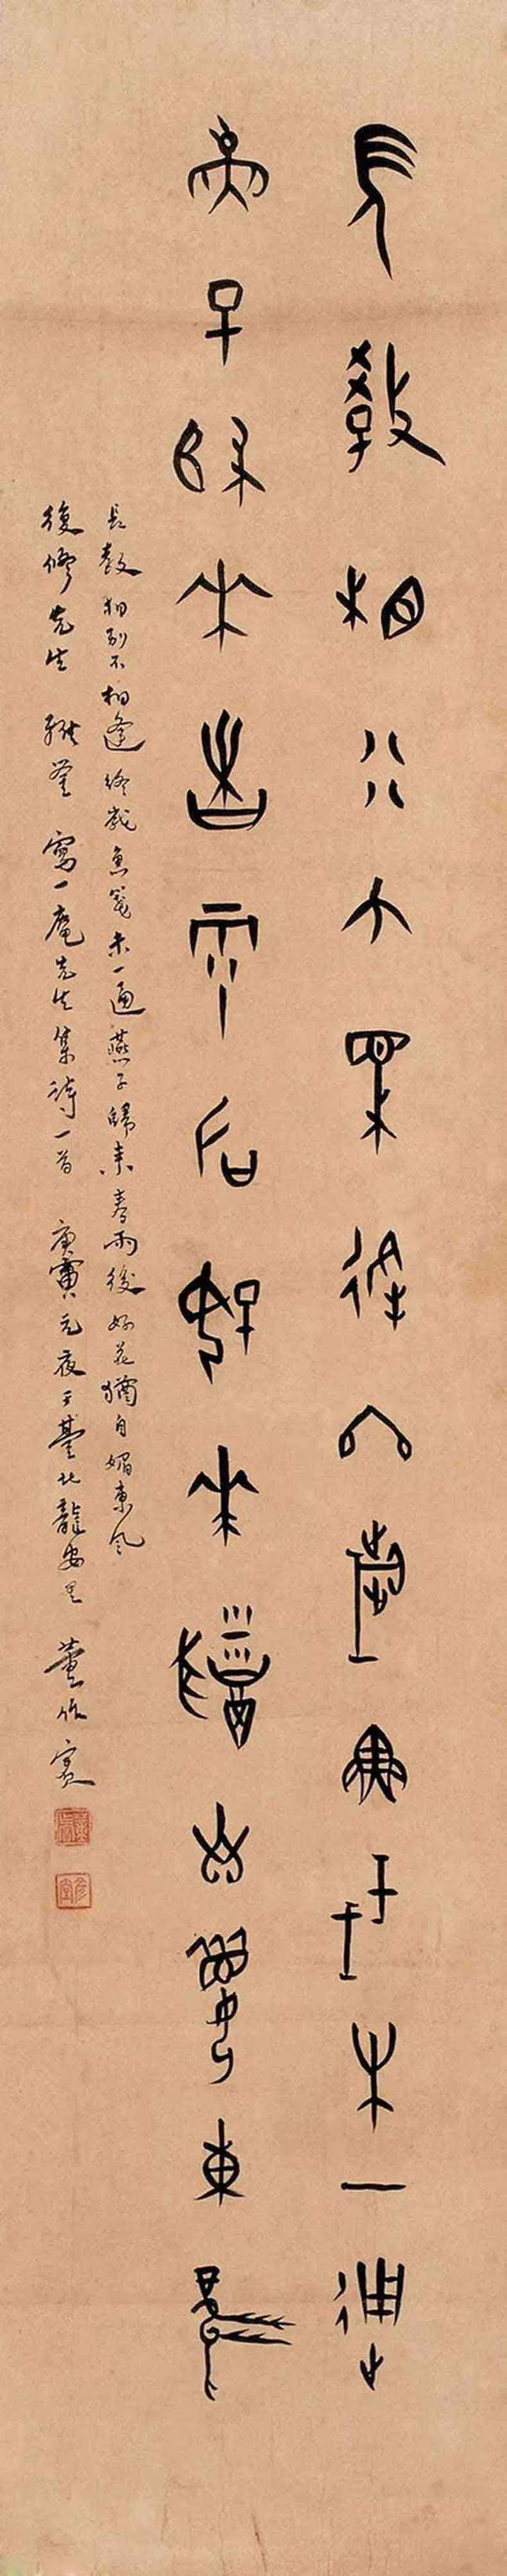 長教相別不眔逢終歲魚箋未一通
燕子歸來春雨後好花猶自媚東風
長教相別不相逢終歲魚箋未一通燕子歸來春雨後好花猶自媚東風
復修先生 雅鑒 寫一庵先生集詩一首 庚寅元夜于臺北龍安里 董作賓
彥堂